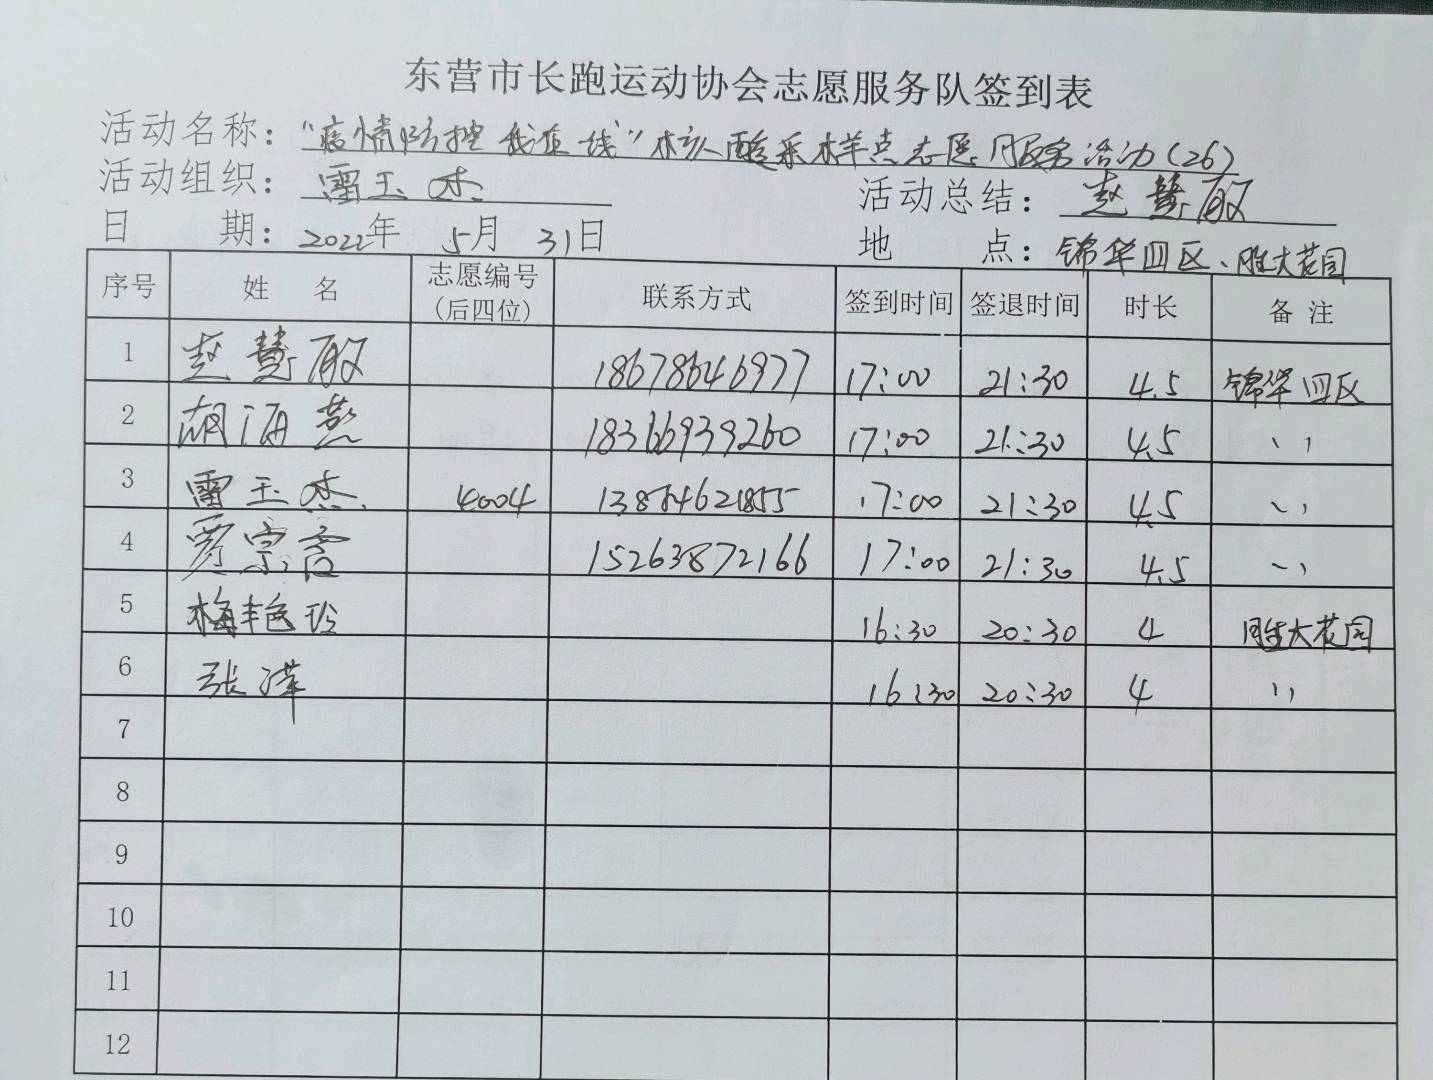 东营市长跑运动协会志愿服务队签到表
活动名称："疫情防控 我在一线"核酸采样点志愿服务活动(26)
活动组织：雷玉杰 活动总结：赵慧敏
日期：2022年5月31日 地点：锦华四区、胜大花园
序号 姓名 志愿编号(后四位) 联系方式 签到时间 签退时间 时长 备注
1 赵慧敏 18678646977 17:00 21:30 4.5 锦华四区
2 胡海燕 18366939260 17:00 21:30 4.5 〃
3 雷玉杰 4004 13864621855 17:00 21:30 4.5 〃
4 贾宗 15263872166 17:00 21:30 4.5 〃
5 梅艳玲 16:30 20:30 4 胜大花园
6 张 16:30 20:30 4 〃
7
8
9
10
11
12